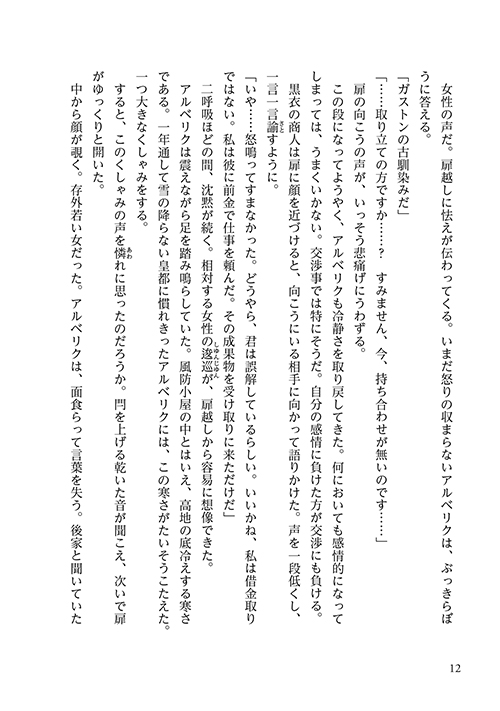 女性の声だ。扉越しに怯えが伝わってくる。いまだ怒りの収まらないアルベリクは、ぶっきらぼ
うに答える。
「ガストンの古馴染みだ」
「……取り立ての方ですか……？　すみません、今、持ち合わせが無いのです……」
　扉の向こうの声が、いっそう悲痛げにうわずる。
　この段になってようやく、アルベリクも冷静さを取り戻してきた。何においても感情的になって
しまっては、うまくいかない。交渉事では特にそうだ。自分の感情に負けた方が交渉にも負ける。
　黒衣の商人は扉に顔を近づけると、向こうにいる相手に向かって語りかけた。声を一段低くし、
一言一言諭すように。
「いや……怒鳴ってすまなかった。どうやら、君は誤解しているらしい。いいかね、私は借金取り
ではない。私は彼に前金で仕事を頼んだ。その成果物を受け取りに来ただけだ」
　二呼吸ほどの間、沈黙が続く。相対する女性の逡巡が、扉越しから容易に想像できた。
　アルベリクは震えながら足を踏み鳴らしていた。風防小屋の中とはいえ、高地の底冷えする寒さ
である。一年通して雪の降らない皇都に慣れきったアルベリクには、この寒さがたいそうこたえた。
一つ大きなくしゃみをする。
　すると、このくしゃみの声を憐れに思ったのだろうか。閂を上げる乾いた音が聞こえ、次いで扉
がゆっくりと開いた。
　中から顔が覗く。存外若い女だった。アルベリクは、面食らって言葉を失う。後家と聞いていた
12